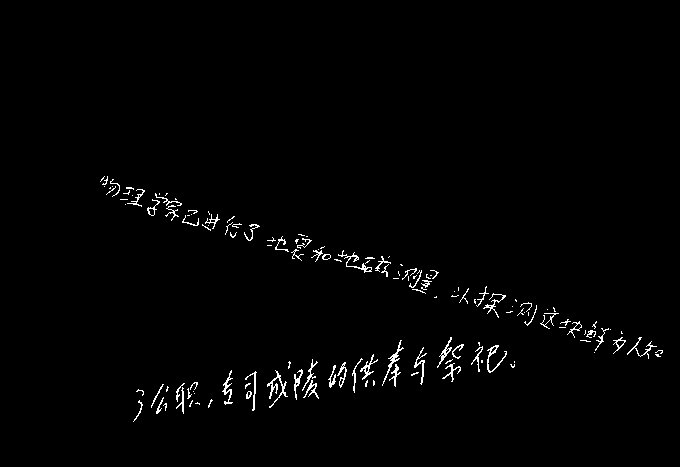 物理学家已进行了地震和地磁测量，以探测这块鲜为人知
了公职，专司成陵的供奉与祭祀。